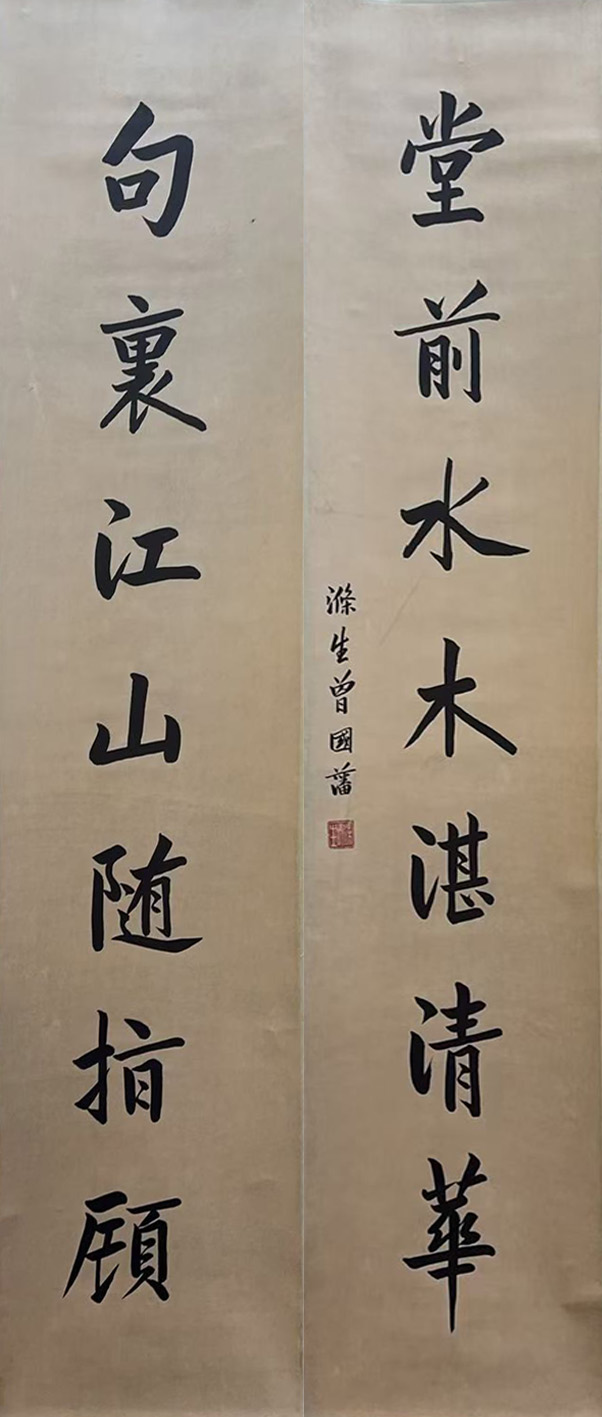 堂前水木湛清華
滌生曾國藩
句裏江山随指顧